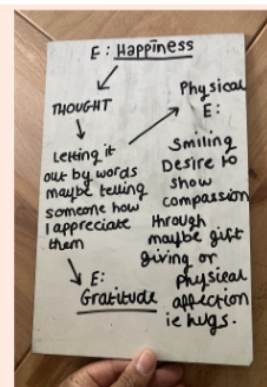 E: Happiness
THOUGHT
Letting it
out by words
maybe telling
someone how
I appreciate
them
E:
Gratitude
Physical
E:
Smiling
Desire to
show
compassion
through
maybe gift
giving or
physical
affection
ie hugs.